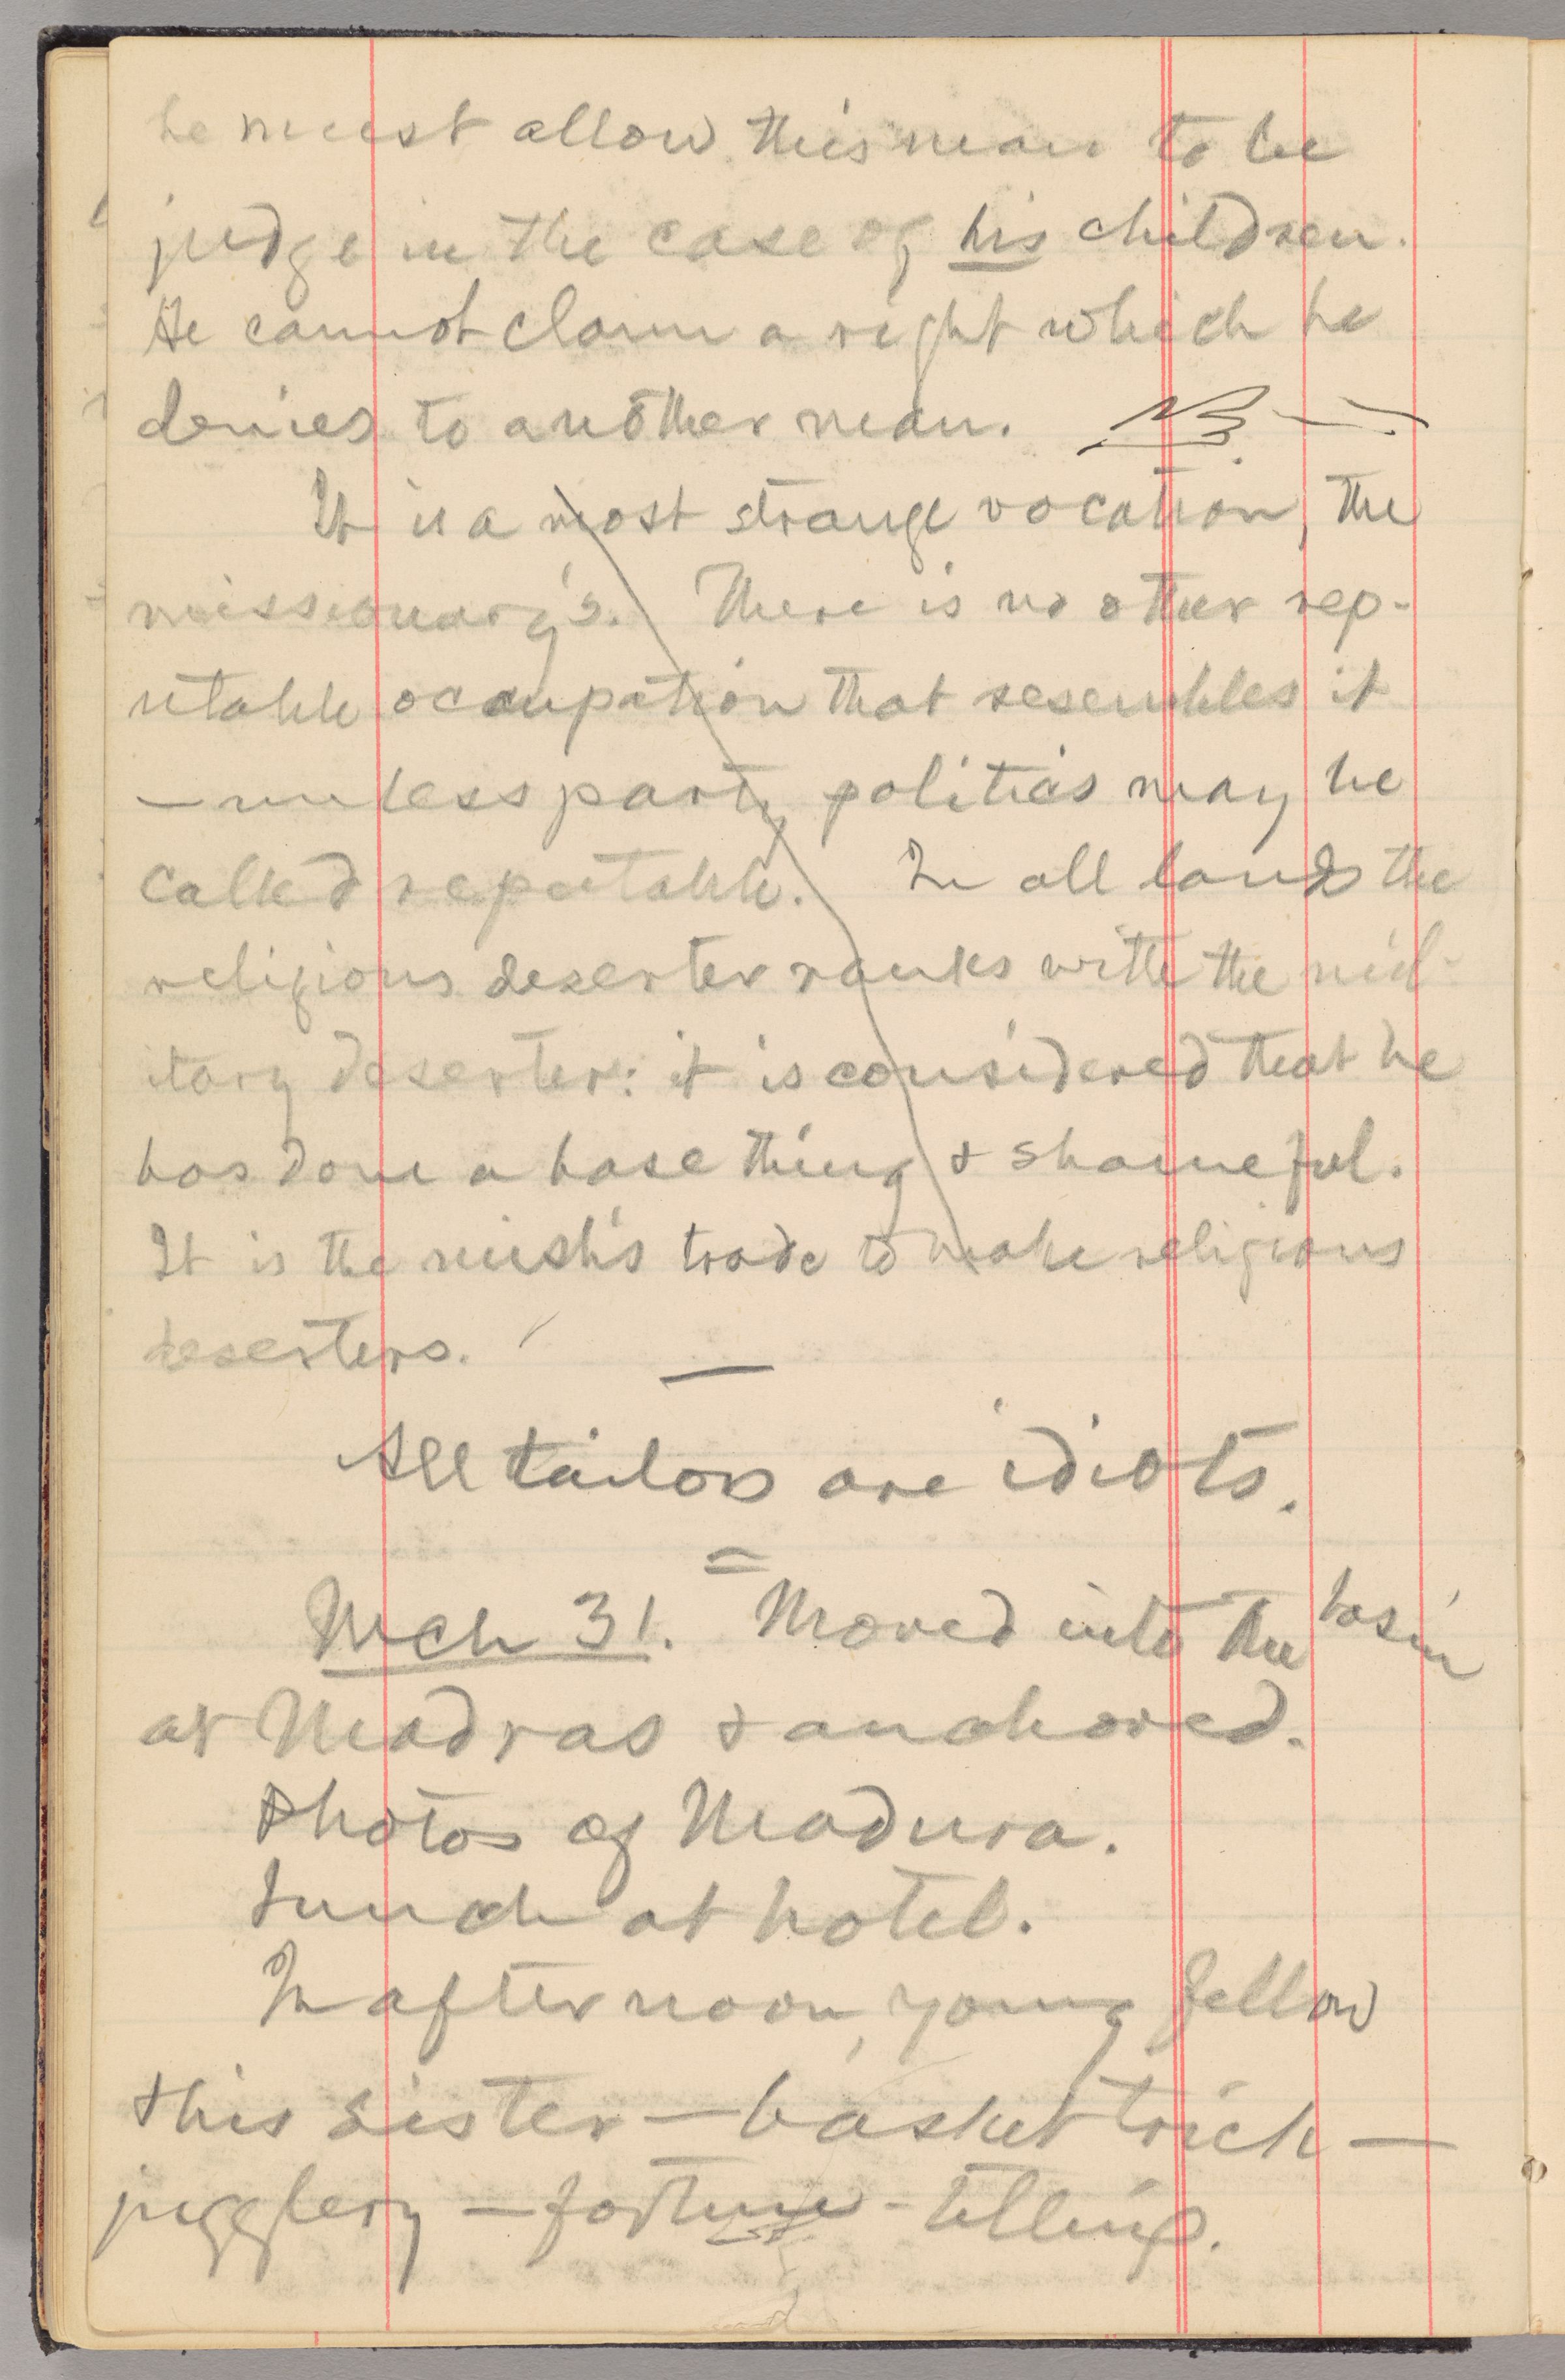 he must allow this man to be
judge in the case of his children.
He cannot claim a right which he
denies to another man.
It is a most strange vocation, the
missionary's. There is no other rep-
utable occupation that resembles it
— unless party politics may be
called reputable. In all lands the
religious deserter ranks with the mil-
itary deserter: it is considered that he
has done a base thing & shameful.
It is the missh's trade to make religious
deserters.
—
All tailors are idiots.
=
Mch 31. Moved into the basin
at Madras & anchored.
Photos of Madura.
Lunch at hotel.
In afternoon, young fellow
& his sister — basket trick —
jugglery — fortune-telling.